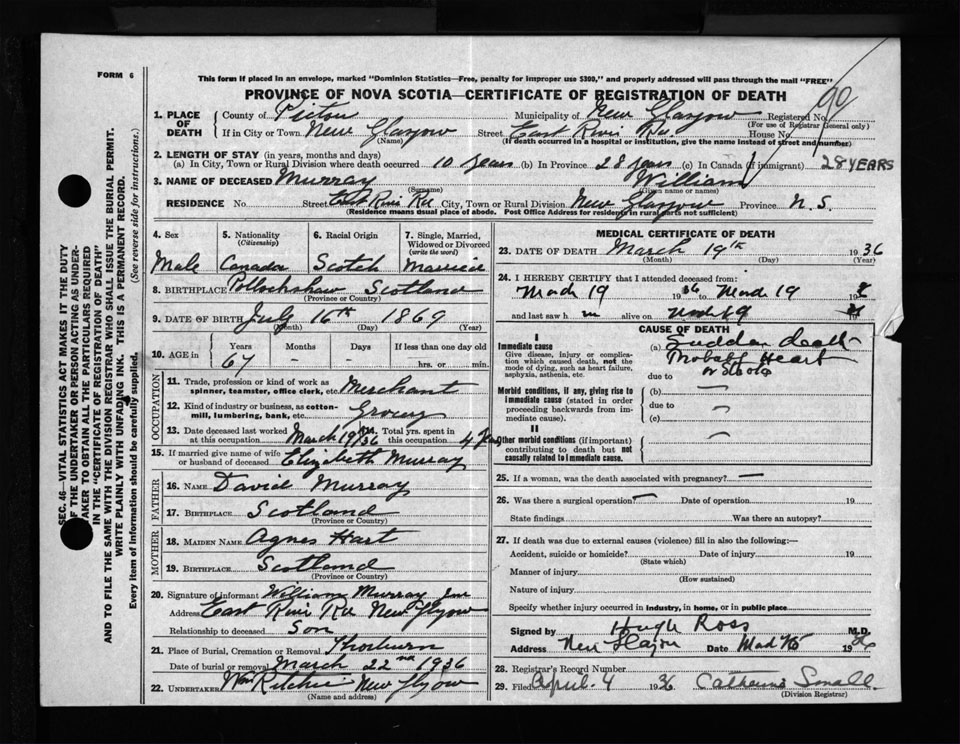 FORM 6
This form if placed in an envelope, marked "Dominion Statistics—Free, penalty for improper use $300," and properly addressed will pass through the mail "FREE"
PROVINCE OF NOVA SCOTIA—CERTIFICATE OF REGISTRATION OF DEATH
90
1. PLACE OF DEATH
County of Pictou Municipality of New Glasgow Registered No.
(For use of Registrar General only)
If in City or Town New Glasgow Street East River Rd. House No.
(Name) (If death occurred in a hospital or institution, give the name instead of street and number)
2. LENGTH OF STAY (in years, months and days)
(a) In City, Town or Rural Division where death occurred 10 years (b) In Province 28 years (c) In Canada (if immigrant) 28 YEARS
3. NAME OF DECEASED Murray William
(Surname) (Given name or names)
RESIDENCE No. Street East River Rd City, Town or Rural Division New Glasgow Province N. S.
(Residence means usual place of abode. Post Office Address for residents in rural parts not sufficient)
4. Sex 5. Nationality (Citizenship) 6. Racial Origin 7. Single, Married, Widowed or Divorced (write the word)
Male Canada Scotch Married
8. BIRTHPLACE Pollockshaw Scotland
(Province or Country)
9. DATE OF BIRTH July 16th 1869
(Month) (Day) (Year)
10. AGE in Years Months Days If less than one day old
67 hrs. or min.
OCCUPATION
11. Trade, profession or kind of work as spinner, teamster, office clerk, etc. Merchant
12. Kind of industry or business, as cotton-mill, lumbering, bank, etc. Grocery
13. Date deceased last worked at this occupation March 19/36 14. Total yrs. spent in this occupation 4
15. If married give name of wife or husband of deceased Elizabeth Murray
FATHER
16. NAME David Murray
17. BIRTHPLACE Scotland
(Province or Country)
MOTHER
18. MAIDEN NAME Agnes Hart
19. BIRTHPLACE Scotland
(Province or Country)
20. Signature of informant William Murray Jnr
Address East River Rd New Glasgow
Relationship to deceased Son
21. Place of Burial, Cremation or Removal Thorburn
Date of burial or removal March 22nd 1936
22. UNDERTAKER Wm Ritchie New Glasgow
(Name and address)
MEDICAL CERTIFICATE OF DEATH
23. DATE OF DEATH March 19th 1936
(Month) (Day) (Year)
24. I HEREBY CERTIFY that I attended deceased from:
March 19 1936 to March 19 19
and last saw h m alive on 19
CAUSE OF DEATH
I
Immediate cause (a) Sudden death
Give disease, injury or complication which caused death, not the mode of dying, such as heart failure, asphyxia, asthenia, etc.
Probably Heart
or
due to
Morbid conditions, if any, giving rise to immediate cause (stated in order proceeding backwards from immediate cause).
(b)
due to
(c)
II
Other morbid conditions (if important) contributing to death but not causally related to immediate cause.
25. If a woman, was the death associated with pregnancy?
26. Was there a surgical operation? Date of operation 19
State findings Was there an autopsy?
27. If death was due to external causes (violence) fill in also the following:—
Accident, suicide or homicide? Date of injury 19
(State which)
Manner of injury
(How sustained)
Nature of injury
Specify whether injury occurred in industry, in home, or in public place
Signed by Hugh Ross M.D.
Address New Glasgow Date 1936
28. Registrar's Record Number
29. Filed April 4 1936 Catherine Small
(Division Registrar)
SEC. 46—VITAL STATISTICS ACT MAKES IT THE DUTY
OF THE UNDERTAKER OR PERSON ACTING AS UNDER-
TAKER TO OBTAIN ALL THE PARTICULARS REQUIRED
IN THE "CERTIFICATE OF REGISTRATION OF DEATH"
AND TO FILE THE SAME WITH THE DIVISION REGISTRAR WHO SHALL ISSUE THE BURIAL PERMIT.
WRITE PLAINLY WITH UNFADING INK. THIS IS A PERMANENT RECORD.
Every item of information should be carefully supplied. (See reverse side for instructions.)